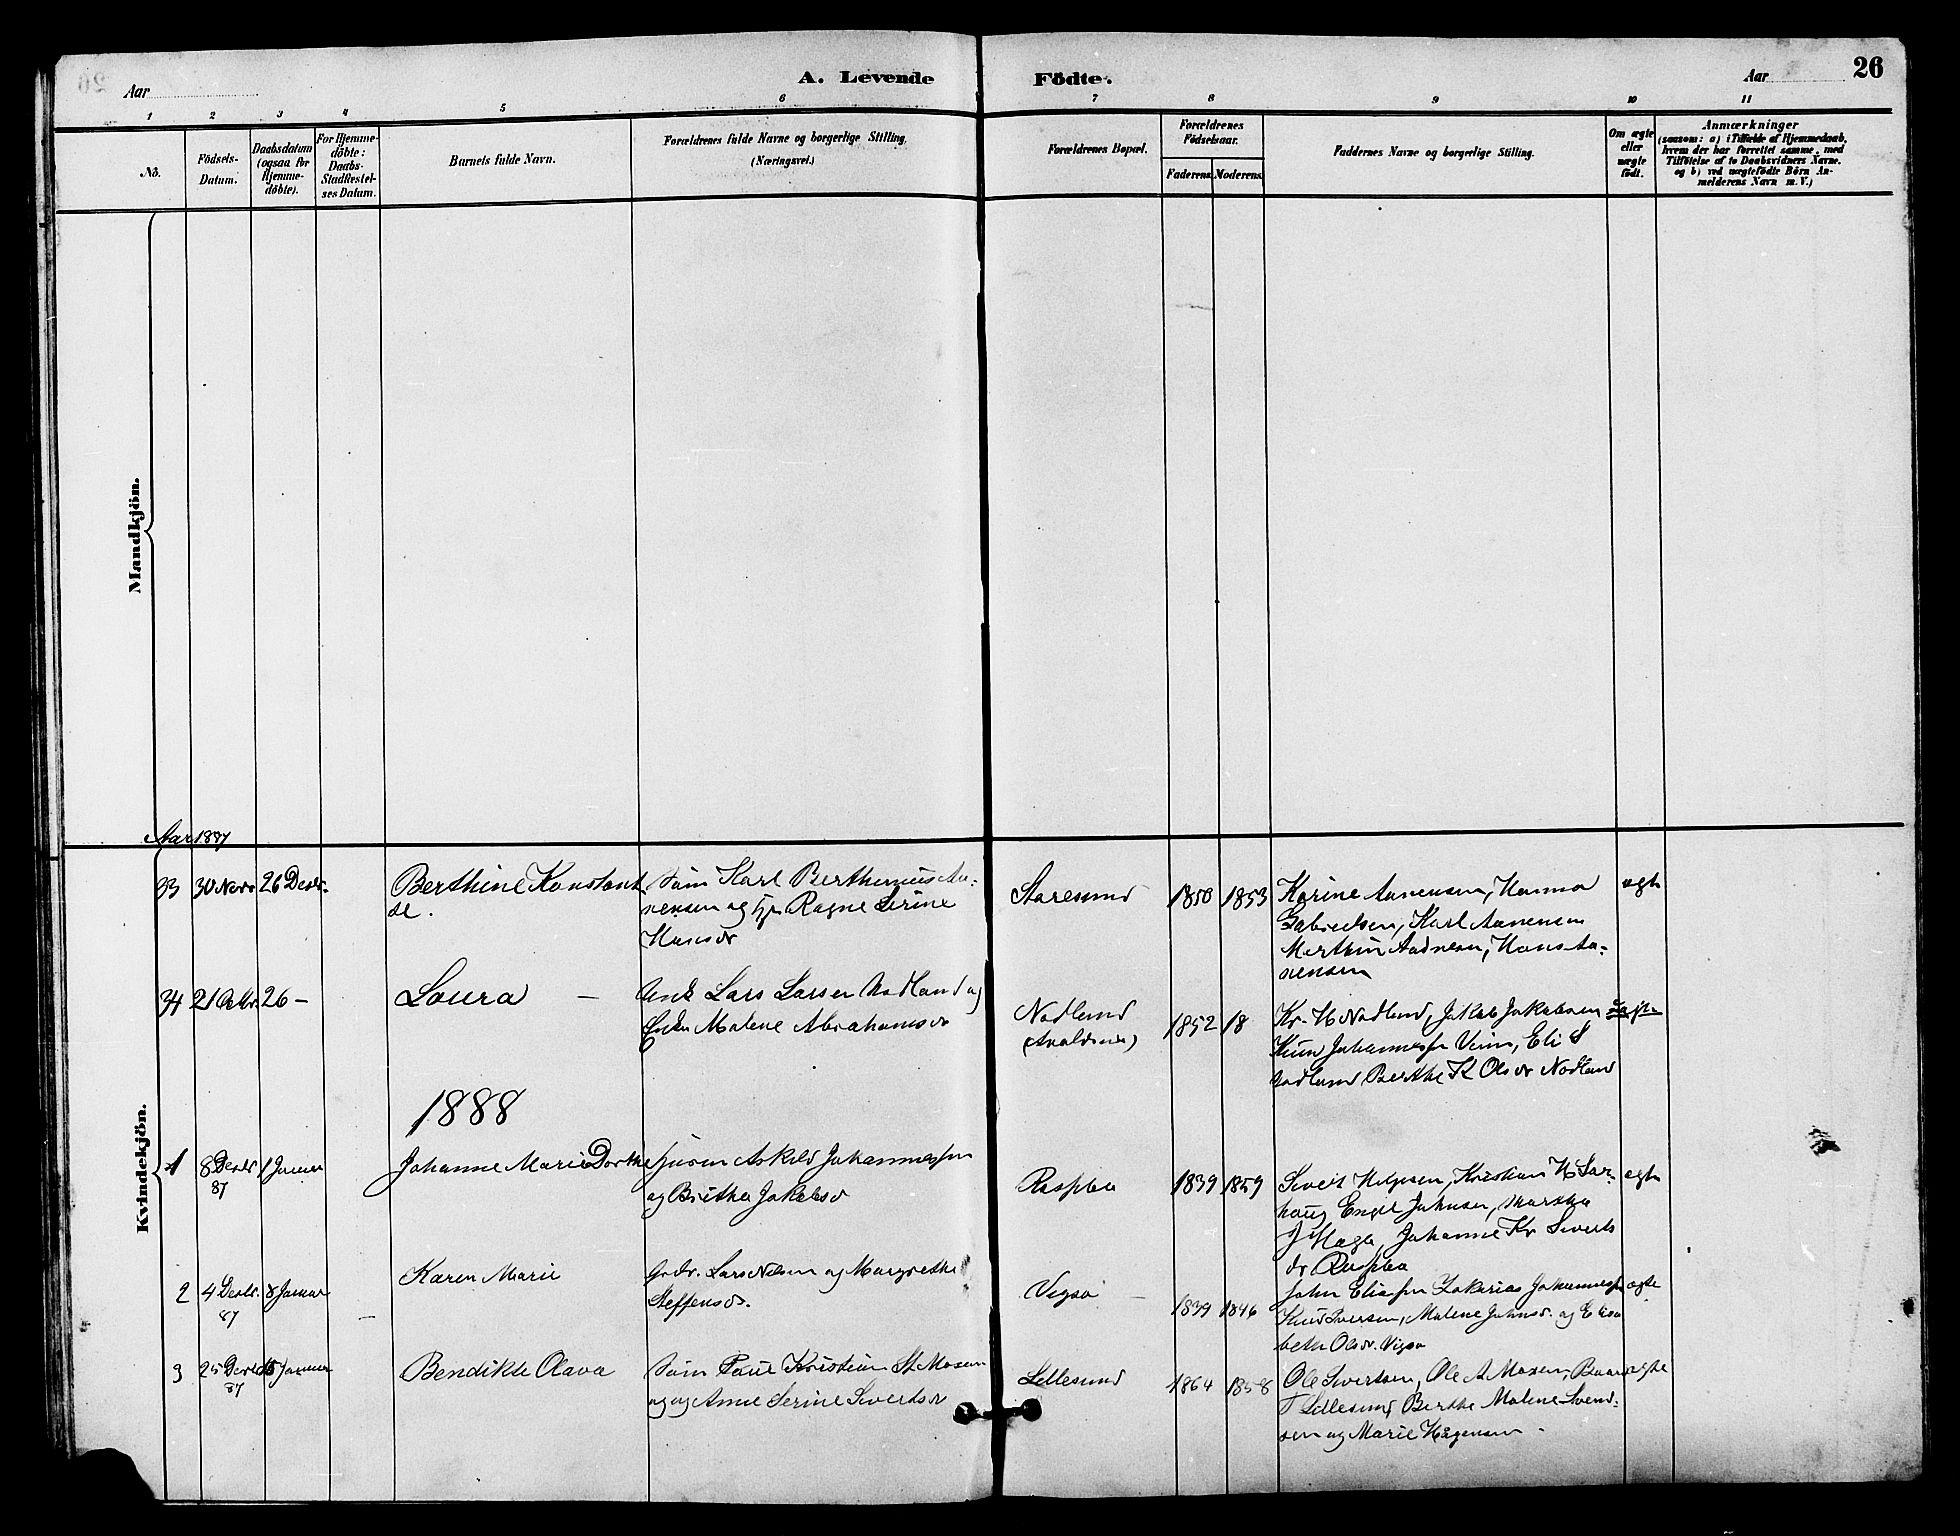 26
A. Levende Födte.
Aar
Aar
1 2 3 4 5 6 7 8 9 10 11
No.
Födsels-
Datum.
Daabsdatum
(ogsaa for
Hjemme-
döbte).
For Hjemme-
döbte:
Daabs-
Stadfæstel-
ses Datum.
Barnets fulde Navn.
Forældrenes fulde Navne og borgerlige Stilling.
(Næringsvei.)
Forældrenes Bopæl.
Forældrenes
Födselsaar.
Faderens. Moderens.
Faddernes Navne og borgerlige Stilling.
Om ægte
eller
uægte
födt.
Anmærkninger
(saasom: a) i Tilfælde af Hjemmedaab,
hvem der har forrettet samme, med
Tilföielse af to Daabsvidners Navne.
og b) ved uægtefödte Börn An-
melderens Navn m. V.)
Mandkjön.
Kvindekjön.
Aar 1887
33 30 Novr 26 Decbr.
Berthine Konstant
se.
Karl
og Ragne Serine
Hansdr
1850 1853
Karine Aanensen, Hanna
Gabrielsen, Karl Aanensen
Hans Aa-
nensen
ægte
34 21 Oktbr. 26 –
Laura –
Lars Larsen Nodland og
Enke Malene Abrahamsdr
Nodland
1852 18
Kr. H Nodland, Jakob Jakobsen
Eli S
Nodland Berthe K Olsdr Nodland
uægte
1888
1 8 Decbr. 1 Januar
87
Johanne Marie Dorthe
Askild Johannessen
og Britha Jakobsdr
1839 1859
Kristian H Sar-
haug Engel Johnsen, Martha
J Haga, Johanne Kr Siverts
dr
ægte
2 4 Decbr. 8 Januar
87
–
Karen Marie
Lars Nilsen og Margrethe
Steffensdr.
Vigsö –
1839 1846
John Eliassen Zakarias Johannessen
Knud Iversen, Malene Johnsdr. og Elisa
beth Olsdr. Vigsö
ægte
3 25 Decbr. 15 Januar
87
Bendikte Olava
Paul Kristian
og Anne Serine Sivertsdr
Lillesund
1864 1858
Ole Sivertsen, Ole A
T Lillesund Berthe Malene Svend-
sen og Marie Hågensen –
ægte